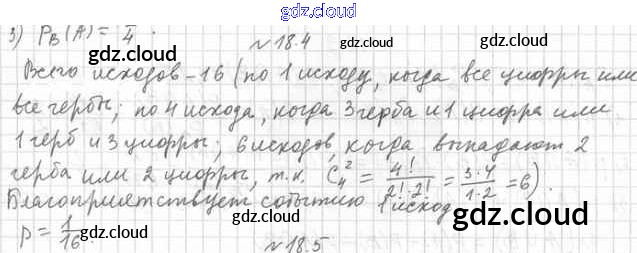 gdz.cloud
3) P_B(A) = 1/4. gdz.cloud gdz.cloud
№18.4
Всего исходов – 16 (по 1 исходу, когда все цифры или
gdz.cloud gdz.cloud
все гербы; по 4 исхода, когда 3 герба и 1 цифра или
1 герб и 3 цифры; 6 исходов, когда выпадают 2
gdz.cloud gdz.cloud
герба или 2 цифры, т.к. C_4^2 = 4!/(2!·2!) = (3·4)/(1·2) = 6).
Благоприятствует событию 1 исход
gdz.cloud gdz.cloud
p = 1/16.
№18.5
gdz.cloud